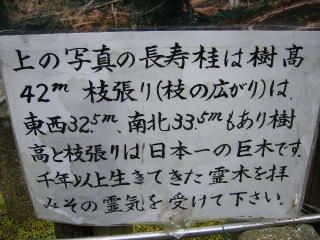 上の写真の長寿桂は樹高
42m 枝張り(枝の広がり)は
東西32.5m、南北33.5mもあり樹
高と枝張りは日本一の巨木です.
千年以上生きてきた霊木を拝
みその霊気を受けて下さい。